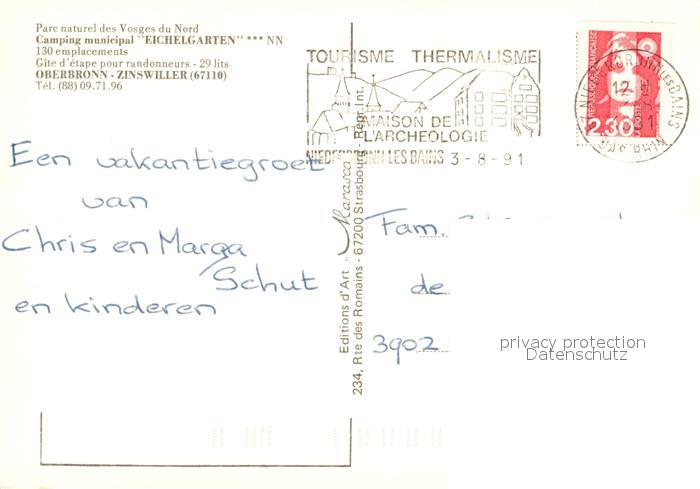 Parc naturel des Vosges du Nord
Camping municipal "EICHELGARTEN" *** NN
130 emplacements
Gîte d'étape pour randonneurs - 29 lits
OBERBRONN - ZINSWILLER (67110)
Tél. (88) 09.71.96
TOURISME THERMALISME
MAISON DE
L'ARCHEOLOGIE
NIEDERBRONN LES BAINS 3-8-91
REPUBLIQUE FRANÇAISE
2.30
LA POSTE
NIEDERBRONN LES BAINS
12
BAS RHIN
Een vakantiegroet
van
Chris en Marga
Schut
en kinderen
Editions d'Art Marasca
234, Rte des Romains - 67200 Strasbourg - Repr. Int.
Fam.
de
3902
privacy protection
Datenschutz